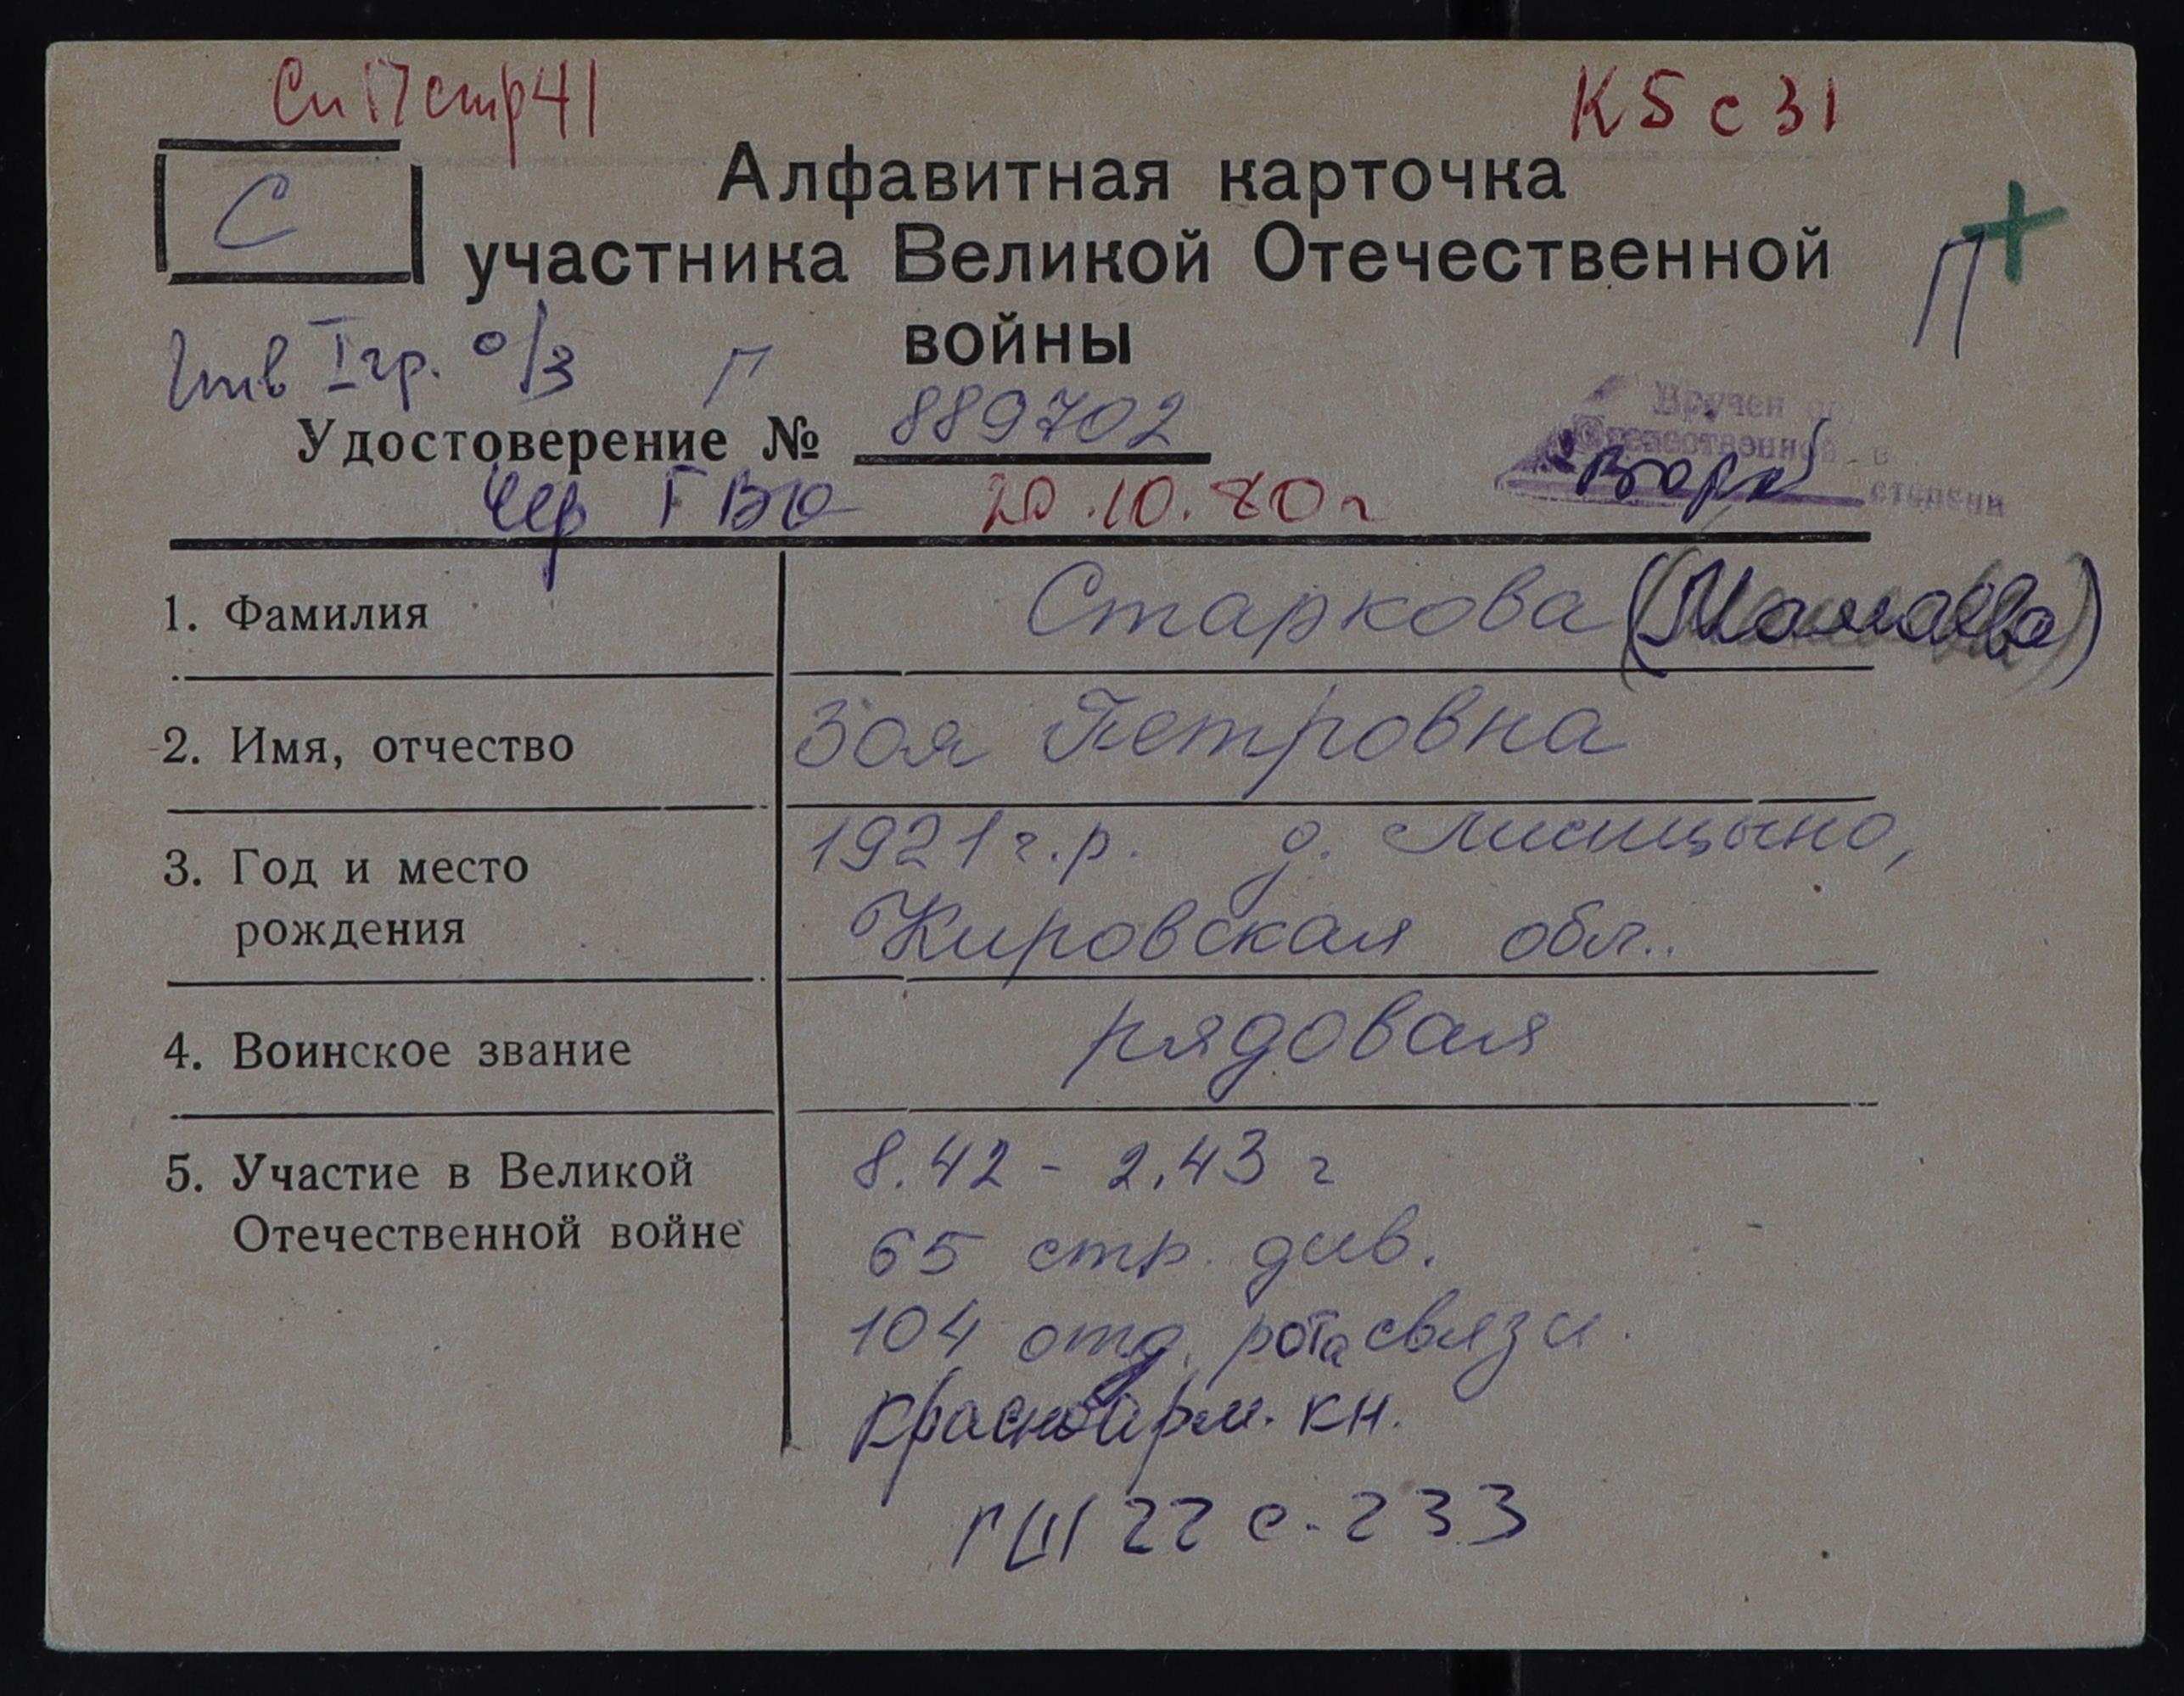 Сп 17 стр 41
К 5 с 31
С
Алфавитная карточка
участника Великой Отечественной
войны
П
Инв I гр. о/з Г
Вручен
Отечественной в.
Удостоверение № 889702
второй степени
ГВЮ 20.10.80 г
1. Фамилия Старкова (Мамаева)
2. Имя, отчество Зоя Петровна
3. Год и место 1921 г.р. д. Лисицыно,
рождения Кировская обл..
4. Воинское звание рядовая
5. Участие в Великой 8.42 - 2.43 г
Отечественной войне 65 стр. див.
104 отд. рота связи.
Красноарм. кн.
ГШ 22 с. 233